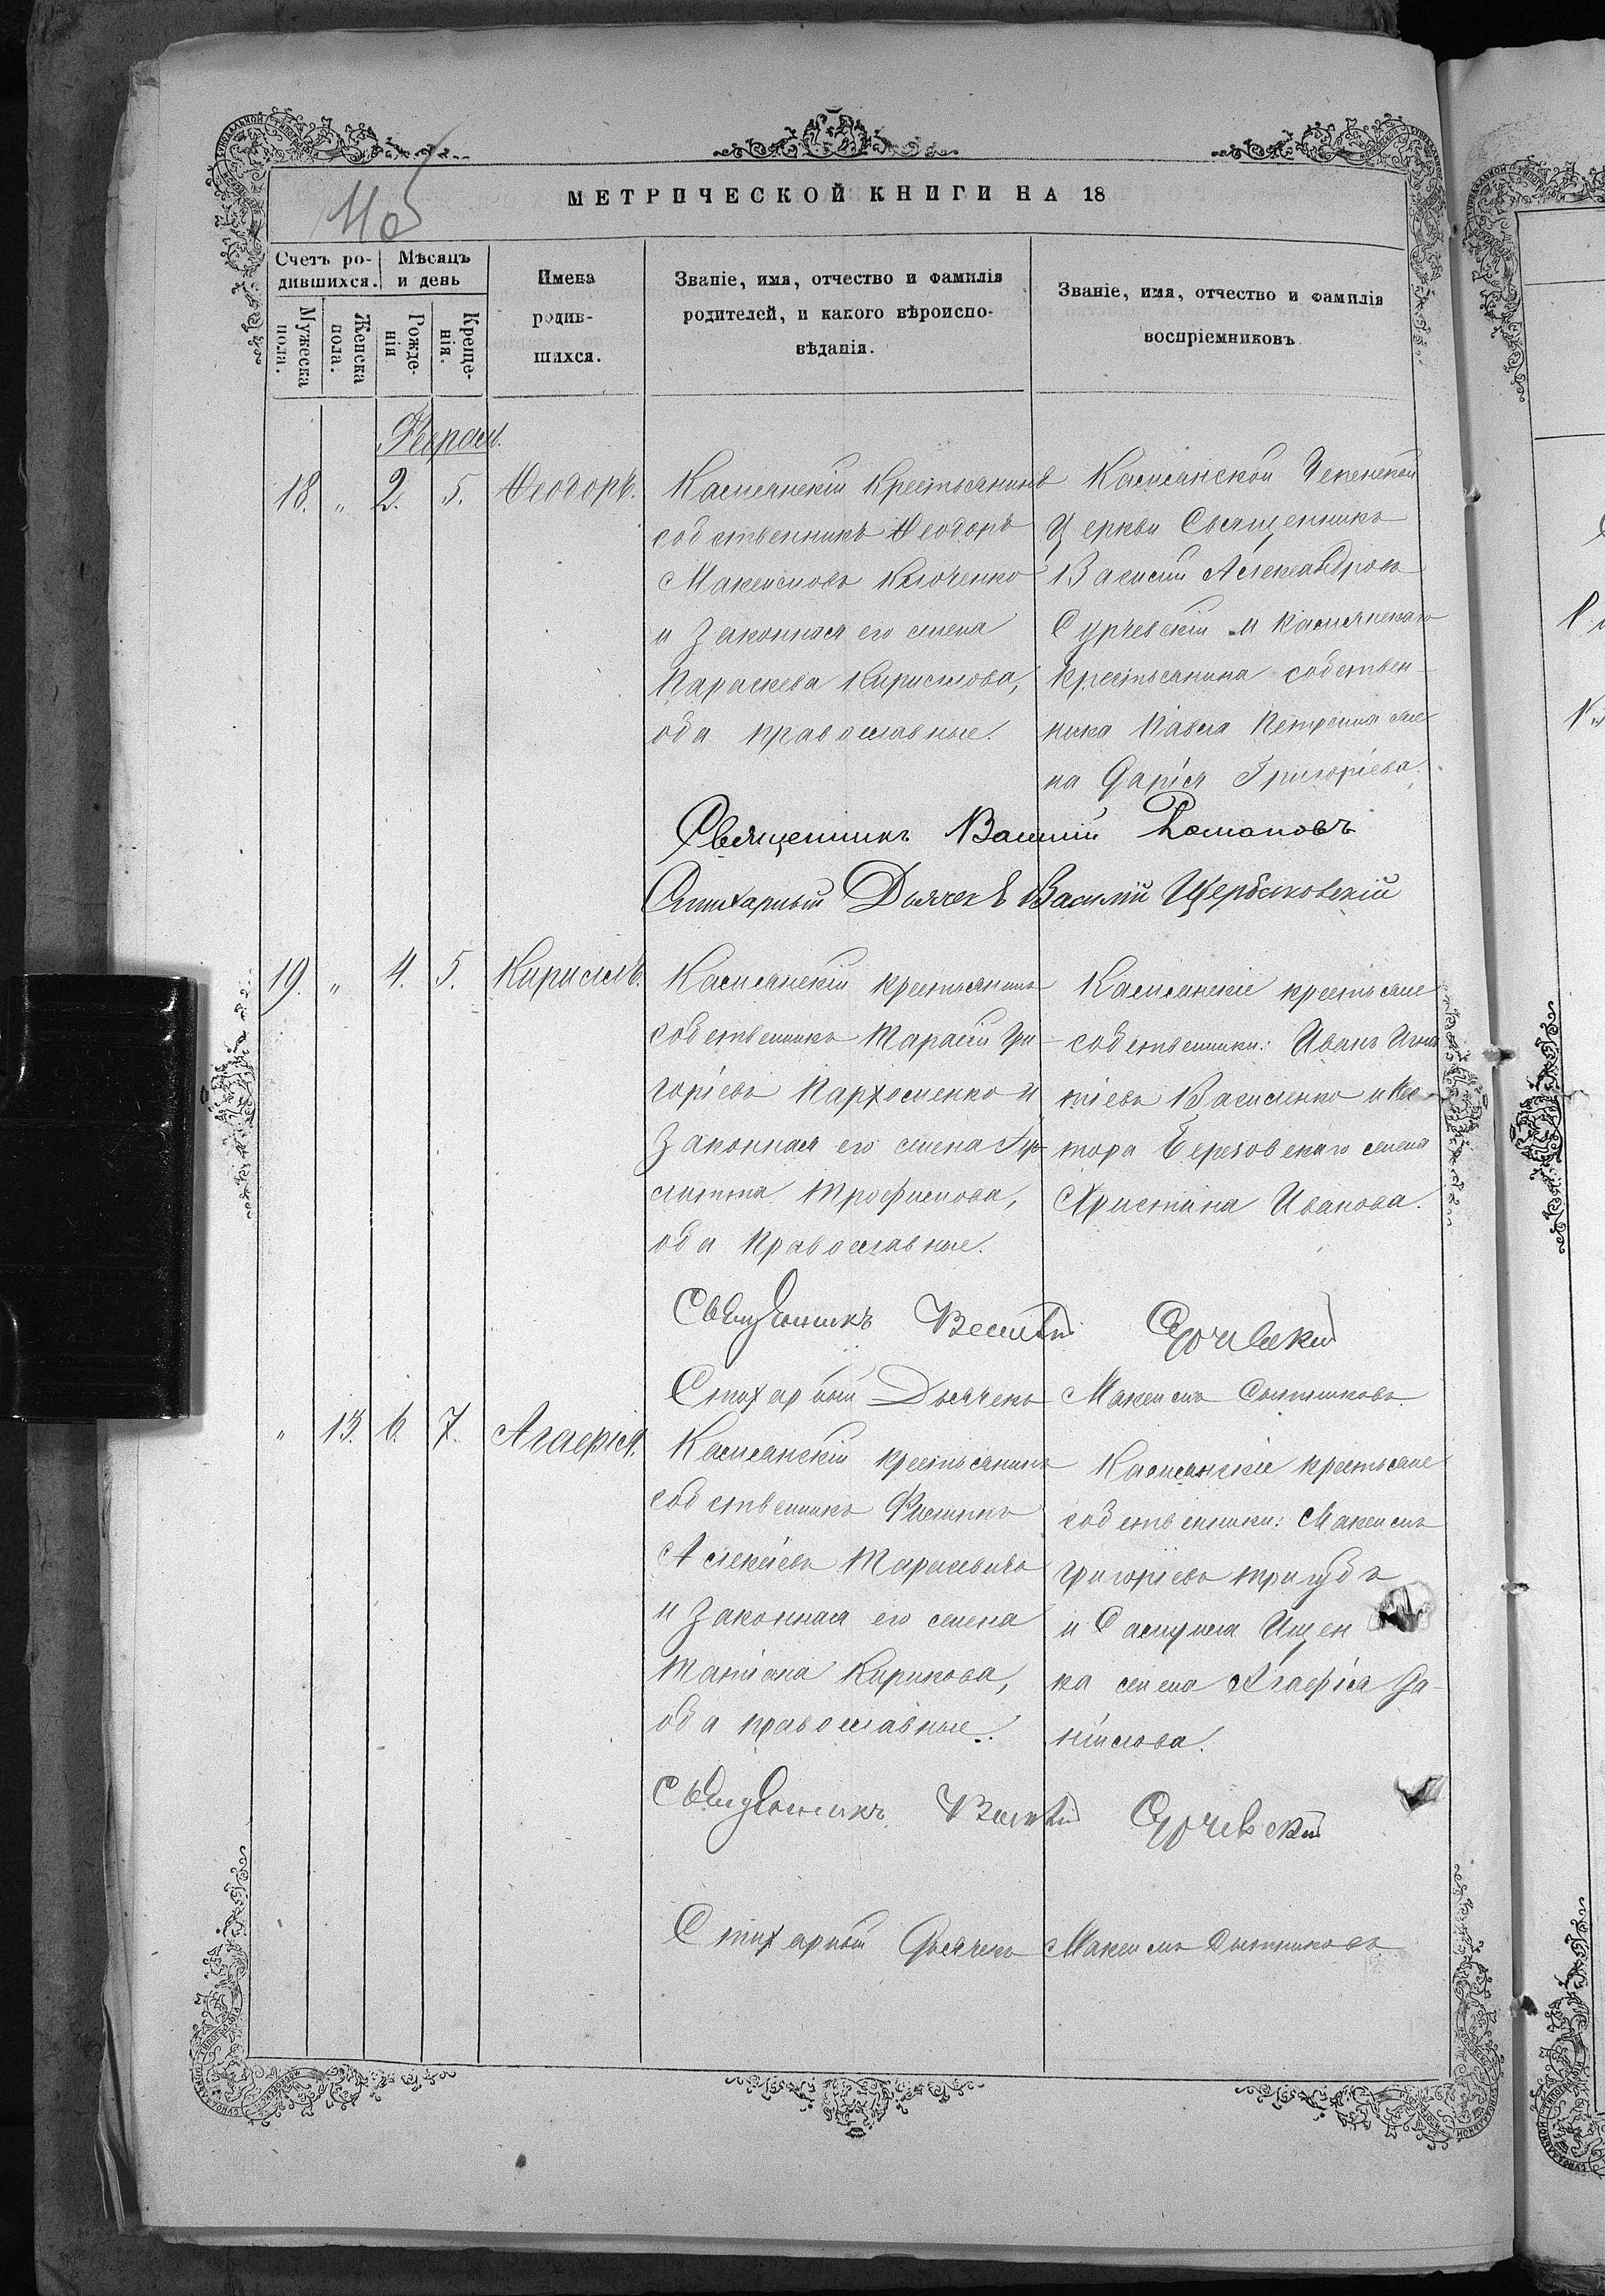 МЕТРИЧЕСКОЙ КНИГИ НА 18
Счетъ ро-
дившихся.
Мѣсяцъ
и день
Мужеска
пола.
Женска
пола.
Рожде-
нія
Креще-
нія.
Имена
родив-
шихся.
Званіе, имя, отчество и фамилія
родителей, и какого вѣроиспо-
вѣданія.
Званіе, имя, отчество и фамилія
воспріемниковъ
Феврал.
18. " 2. 5. Ѳеодоръ.
Крестьянинъ
собственникъ Ѳеодоръ
Максимовъ Ключенко
и законная его жена
Параскева Кирилова,
оба православные.
Церкви Священникъ
Василій Александровъ
и
крестьянина собствен-
ника Павла жe-
на Дарія Григоріева.
Священникъ Василій Романовъ
Стихарный Дьячекъ Василій Щербаковскій
19. " 4. 5. Кириллъ.
крестьянинъ
собственникъ Тарасій Гри-
горіевъ Пархоменко и
законная его жена
Трофимова,
оба православные.
крестьяне
собственники: Иванъ Игна
тіевъ Василенко и
Березовскаго жена
Христина Иванова.
Священникъ Василій
Стихарный Дьячекъ Максимъ
" 13. 6. 7. Агафія.
крестьянинъ
собственникъ Филиппъ
Алексѣевъ
и законная его жена
Татіана Кирилова,
оба православные.
крестьяне
собственники: Максимъ
Григоріевъ Тригубъ
и Самуила Ищен
ка жена Агафія Да-
ніилова.
Священникъ Василій
Стихарный Дьячекъ Максимъ